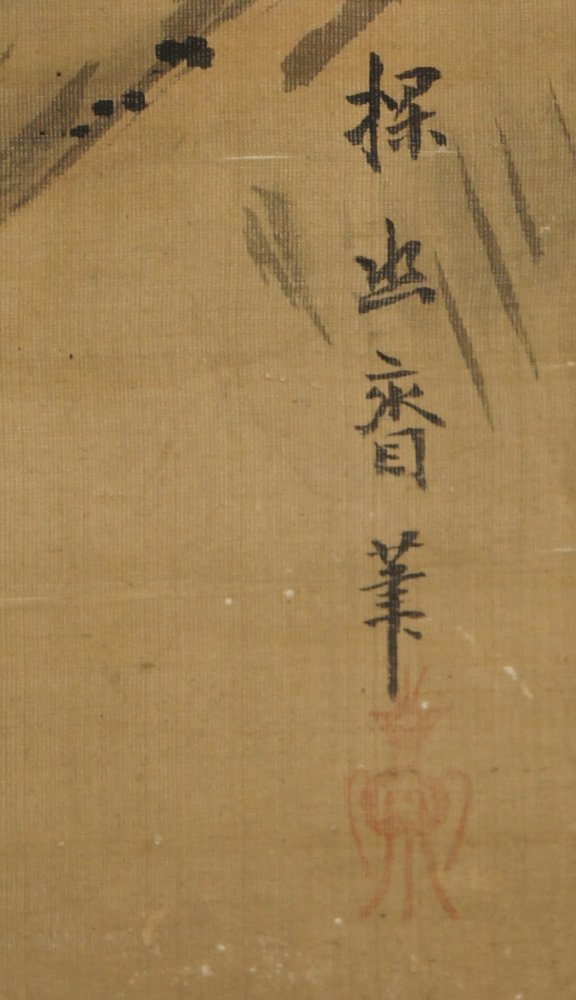 探幽斎筆